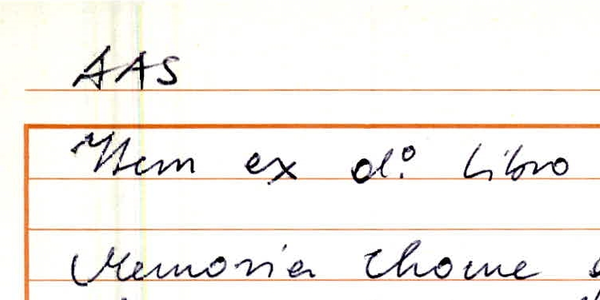 AAS
Item ex d:º libro
Memoria Thome